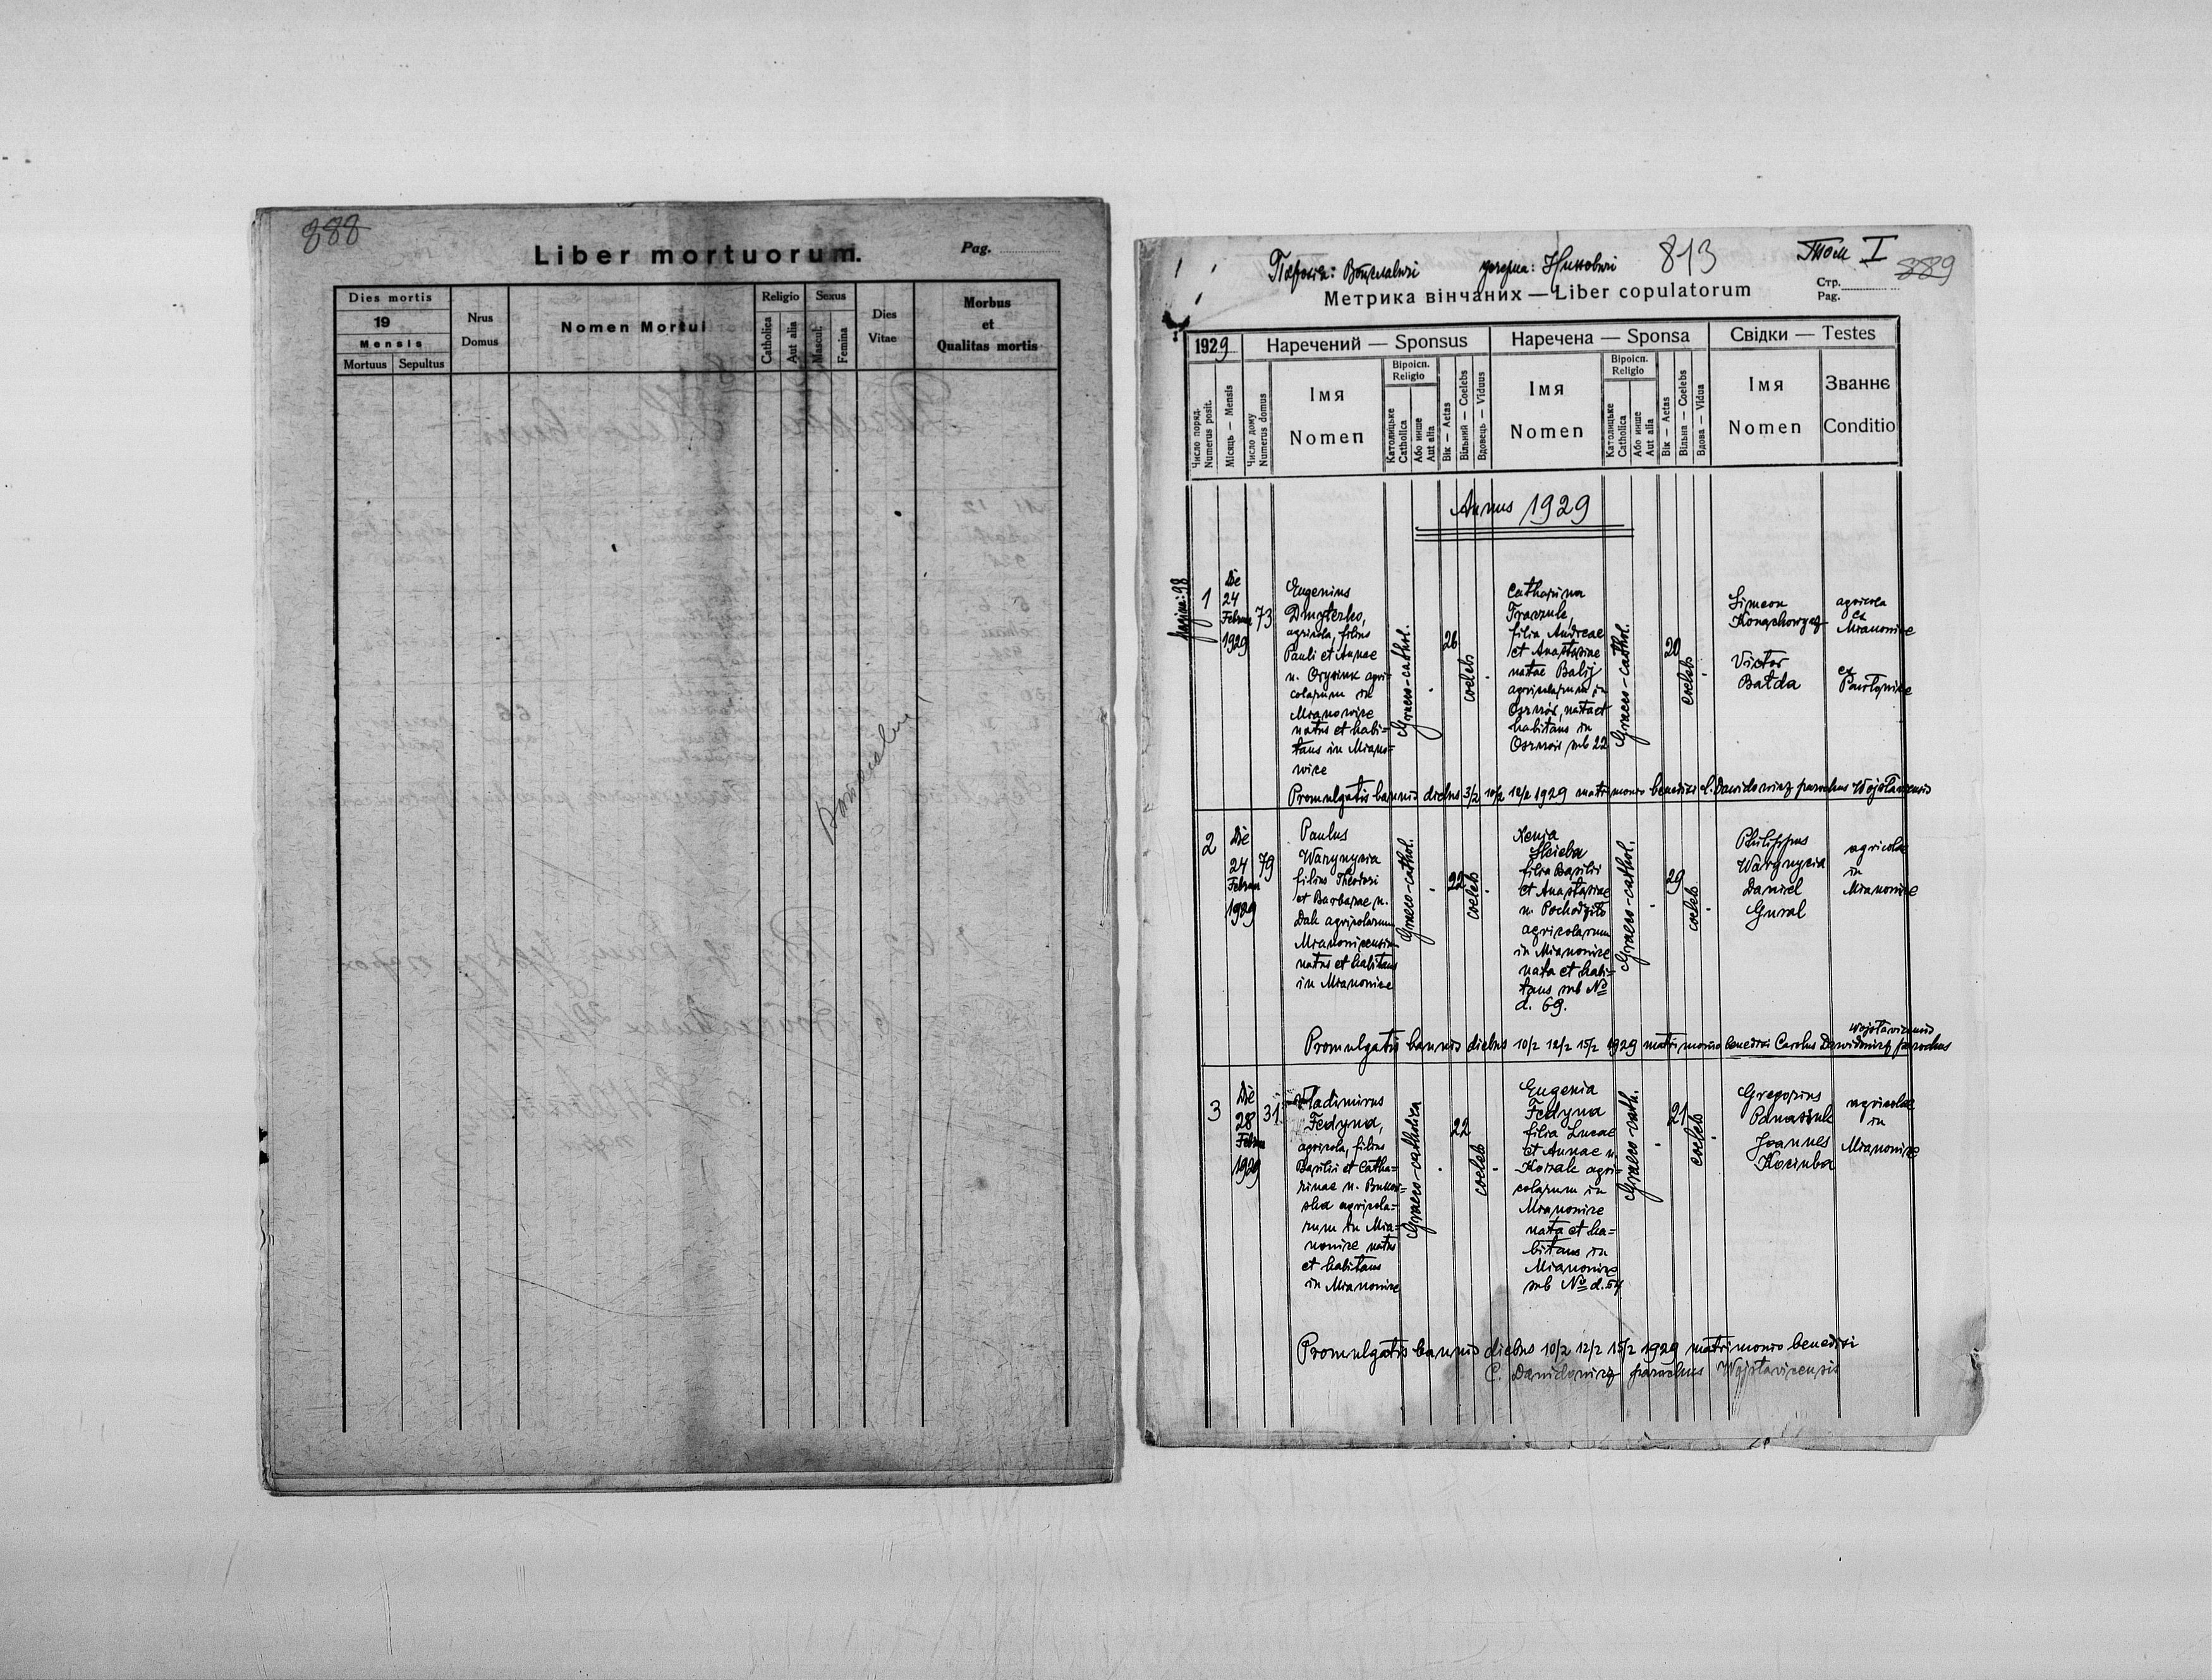 888
Liber mortuorum.
Pag.
Dies mortis
19
Mensis
Mortuus
Sepultus
Nrus
Domus
Nomen Mortui
Religio
Catholica
Aut alia
Sexus
Mascul.
Femina
Dies
Vitae
Morbus
et
Qualitas mortis
813
Том I
889
Метрика вінчаних — Liber copulatorum
Стр.
Pag.
1929
Наречений — Sponsus
Наречена — Sponsa
Свідки — Testes
Число поряд.
Numerus posit.
Місяць — Mensis
Число дому
Numerus domus
Імя
Nomen
Віроісп.
Religio
Католицьке
Catholica
Або инше
Aut alia
Вік — Aetas
Вільний — Coelebs
Вдовець — Viduus
Імя
Nomen
Віроісп.
Religio
Католицьке
Catholica
Або инше
Aut alia
Вік — Aetas
Вільна — Coelebs
Вдова — Vidua
Імя
Nomen
Званнє
Conditio
Annus 1929
1
Die
24
Februar
1929
73
Eugenius
Dmyterko,
agricola, filius
Pauli et Annae
n. agri-
colarum in
Mianowice
natus et habi-
tans in Miano-
wice
Graeco-cathol.
26
coelebs
Catharina
filia Andreae
et Anastasiae
natae Balij
agricolarum in
nata et
habitans in
sub 22
Graeco-cathol.
20
coelebs
Simeon
agricola
ex
Mianowice
Victor
Bałda
ex
Promulgatis bannis diebus 3/2 10/2 12/2 1929 matrimonio benedixi C. Dawidowicz parochus Wojsławicensis
2
Die
24
Februar
1929
79
Paulus
Warynycia
filius Theodori
et Barbarae n.
Dak agricolarum
Mianowicensium
natus et habitans
in Mianowice
Graeco-cathol.
22
coelebs
Xenia
filia Basilii
et Anastasiae
n. Pochodziło
agricolarum
in Mianowice
nata et habi-
tans sub No
d. 69.
Graeco-cathol.
29
coelebs
Philippus
Warynycia
Daniel
Gural
agricolae
in
Mianowice
Promulgatis bannis diebus 10/2 12/2 15/2 1929 matrimonio benedixi Carolus Dawidowicz parochus
Wojsławicensis
3
Die
28
Februar
1929
31
Vladimirus
Fedyna,
agricola, filius
Basilii et Catha-
rinae n. Bukow-
ska agricola-
rum in Mia-
nowice natus
et habitans
in Mianowice
Graeco-catholica
22
coelebs
Eugenia
Fedyna
filia Lucae
et Annae n.
Kozak agri-
colarum in
Mianowice
nata et ha-
bitans in
Mianowice
sub No d. 54
Graeco-cath.
21
coelebs
Gregorius
Panasiuk
Joannes
Kociuba
agricolae
in
Mianowice
Promulgatis bannis diebus 10/2 12/2 15/2 1929 matrimonio benedixi
C. Dawidowicz parochus Wojsławicensis